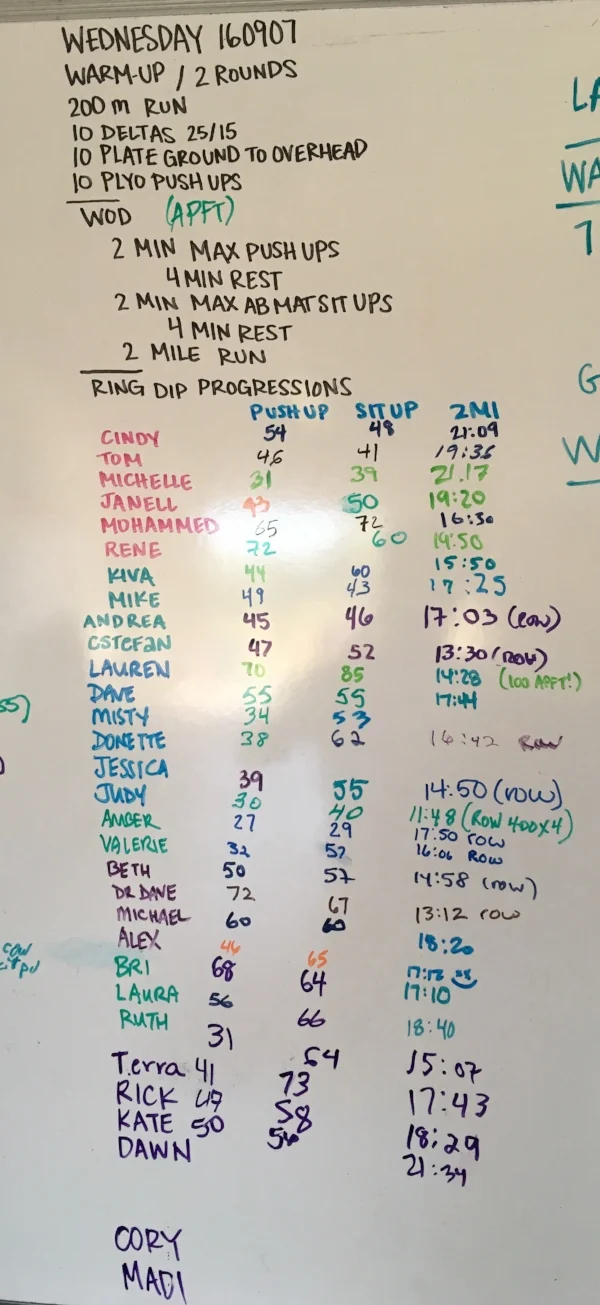 WEDNESDAY 160907
WARM-UP / 2 ROUNDS
200 m RUN
10 DELTAS 25/15
10 PLATE GROUND TO OVERHEAD
10 PLYO PUSH UPS
WOD (APFT)
2 MIN MAX PUSH UPS
4 MIN REST
2 MIN MAX ABMAT SIT UPS
4 MIN REST
2 MILE RUN
RING DIP PROGRESSIONS
PUSHUP SITUP 2MI
CINDY 54 48 21:09
TOM 46 41 19:36
MICHELLE 31 39 21.17
JANELL 43 50 19:20
MOHAMMED 65 72 16:30
RENE 72 60 19:50
KIVA 44 60 15:50
MIKE 49 43 17:25
ANDREA 45 46 17:03 (row)
ESTEFAN 47 52 13:30 (row)
LAUREN 70 85 14:28 (100 APFT!)
DAVE 55 55 17:44
MISTY 34 53
DONETTE 38 62 16:42 Row
JESSICA
JUDY 39 55 14:50 (row)
AMBER 30 40 11:48 (ROW 400x4)
VALERIE 27 29 17:50 row
BETH 32 52 16:06 Row
DR DAVE 50 57 14:58 (row)
MICHAEL 72 67 13:12 row
ALEX 60 60 18:20
BRI 46 65 17:12
LAURA 68 64 17:10
RUTH 56 66 18:40
Terra 31 54 15:07
RICK 41 73 17:43
KATE 49 58 18:29
DAWN 50 56 21:34
CORY
MADI
LA
WA
7
G
W
55)